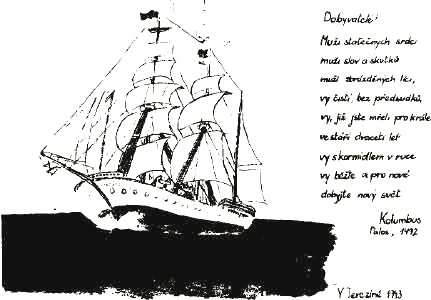 Dobyvatelé!
Muži statečných srdcí
muži slov a skutků
muži zbrázděných lící,
vy čistí, bez předsudků,
vy, již jste mřeli pro krále
ve stáří dvaceti let
vy s kormidlem v ruce
vy běžte a pro nové
dobyjte nový svět
Kolumbus
Palos, 1492
V Terezíně 1943